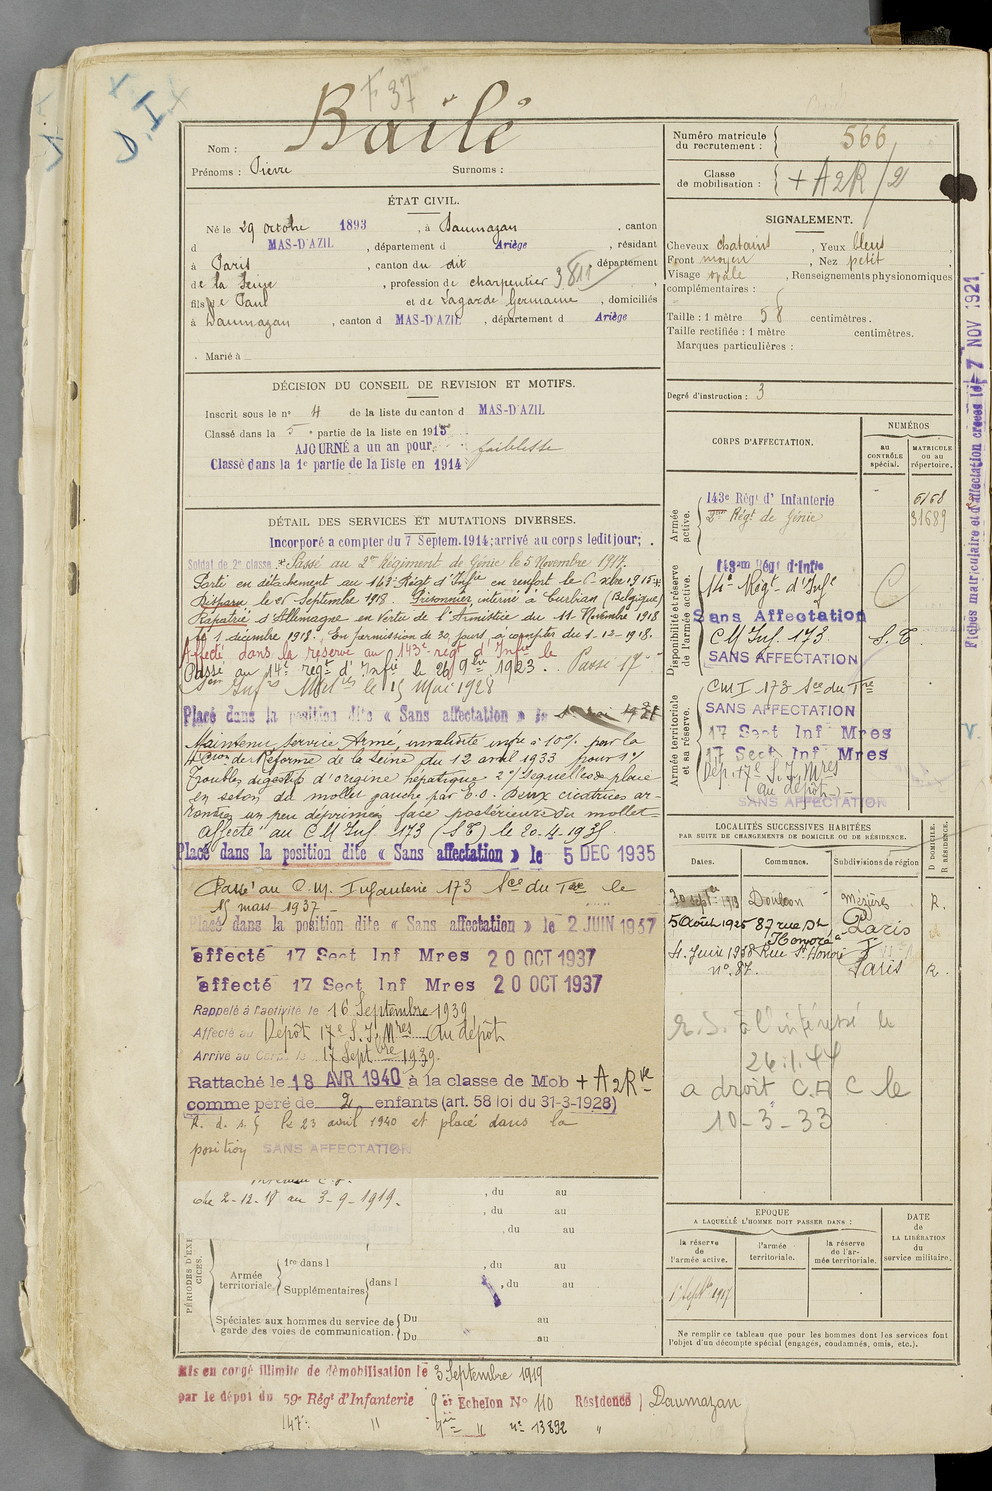 F 37
D.I
Nom : Bailé
Prénoms : Pierre Surnoms :
Numéro matricule du recrutement : 566
Classe de mobilisation : + A2R/2
ÉTAT CIVIL.
Né le 29 octobre 1893, à Daumazan, canton
d MAS-D'AZIL, département d Ariège, résidant
à Paris, canton du dit, département
de la Seine, profession de charpentier
fils de Paul et de Lagarde Germaine, domiciliés
à Daumazan, canton d MAS-D'AZIL, département d Ariège
Marié à
SIGNALEMENT.
Cheveux chatains, Yeux bleus
Front moyen, Nez petit,
Visage ovale, Renseignements physionomiques
complémentaires :
Taille : 1 mètre 58 centimètres.
Taille rectifiée : 1 mètre centimètres.
Marques particulières :
Degré d'instruction : 3
DÉCISION DU CONSEIL DE REVISION ET MOTIFS.
Inscrit sous le n° 4 de la liste du canton d MAS-D'AZIL
Classé dans la 5e partie de la liste en 1913
AJOURNÉ a un an pour faiblesse
Classé dans la 1e partie de la liste en 1914
DÉTAIL DES SERVICES ET MUTATIONS DIVERSES.
Incorporé a compter du 7 Septem. 1914; arrivé au corps ledit jour;
Soldat de 2e classe. Passé au 2me Régiment de Génie le 5 Novembre 1917.
Parti en détachement au 143e Régt d'Infie en renfort le 6 xbre 1915
Disparu le 26 Septembre 1918. Prisonnier interné à (Belgique)
Rapatrié d'Allemagne en vertu de l'Armistice du 11 Novembre 1918
le 1 décembre 1918. En permission de 30 jours à compter du 1-12-18.
Affecté dans la réserve au 143e régt d'Infie le
Passé au 14e régt d'Infie le 26 9bre 1923. Passé 17e
le 15 Mai 1928
Placé dans la position dite « Sans affectation » le
Maintenu service Armé, invalidité infre à 10% par la
de Réforme de la Seine du 12 avril 1933 pour 1°
troubles digestifs d'origine hépatique 2° séquelles de plaie
en séton du mollet gauche par E.O. Deux cicatrices ar-
rondies un peu déprimées face postérieure du mollet
Affecté au CM Inf. 173 (S.E) le 20.4.1935
Placé dans la position dite « Sans affectation » le 5 DEC 1935
Passé au C.M. Infanterie 173 Sce du Tre le
15 mars 1937
Placé dans la position dite « Sans affectation » le 2 JUIN 1937
affecté 17 Sect Inf Mres 20 OCT 1937
affecté 17 Sect Inf Mres 20 OCT 1937
Rappelé à l'activité le 16 Septembre 1939
Affecté au Dépôt 17e S.I. Mres au dépôt
Arrivé au Corps le 17 Septbre 1939
Rattaché le 18 AVR 1940 à la classe de Mob + A2Rve
comme père de 2 enfants (art. 58 loi du 31-3-1928)
R. d. s. f. le 23 avril 1940 et placé dans la
position SANS AFFECTATION
du 2-12-18 au 3-9-1919.
, du au
, du au
, du au
PÉRIODES D'EXERCICES.
Armée territoriale
1re dans l , du au
Supplémentaires dans l , du au
Spéciales aux hommes du service de garde des voies de communication.
Du au
Du au
CORPS D'AFFECTATION.
NUMÉROS
au CONTRÔLE spécial.
MATRICULE ou au répertoire.
Armée active.
143e Régt d'Infanterie 6168
2me Régt de Génie 31689
Disponibilité et réserve de l'armée active.
143me Régt d'Infie
14e Régt d'Inf C
Sans Affectation
CM Inf. 173 S.E
SANS AFFECTATION
Armée territoriale et sa réserve.
CMI 173 Sce du Tre
SANS AFFECTATION
17 Sect Inf Mres
17 Sect Inf Mres
Dép. 17e S.I. Mres
au dépôt
SANS AFFECTATION
LOCALITÉS SUCCESSIVES HABITÉES
PAR SUITE DE CHANGEMENTS DE DOMICILE OU DE RÉSIDENCE.
Dates. Communes. Subdivisions de région
D DOMICILE.
R RÉSIDENCE.
30 septbre 1919 Mézières R.
5 Août 1925 87 rue St Honoré Paris
4 Juin 1938 Rue St Honoré n° 87. Paris R.
R.S. à l'intéressé le
26.1.44
a droit C.A C le
10-3-33
EPOQUE
A LAQUELLE L'HOMME DOIT PASSER DANS :
DATE de LA LIBÉRATION du service militaire.
la réserve de l'armée active.
l'armée territoriale.
la réserve de l'armée territoriale.
Ne remplir ce tableau que pour les hommes dont les services font
l'objet d'un décompte spécial (engagés, condamnés, omis, etc.).
Mis en congé illimité de démobilisation le 3 Septembre 1919
par le dépôt du 59e Régt d'Infanterie 9e Echelon N° 110 Résidence Daumazan
147e " " n° 13892 "
Fiches matriculaire et d'affectation créées le 7 NOV 1921